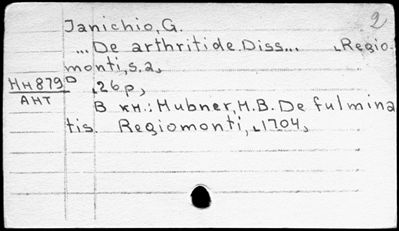 Janichio, G. 2
... De arthritide. Diss... [Regio-
monti, s.a.]
HH879D [26 p.]
АНТ В кн.: Hubner, H.B. De fulmina
tis. Regiomonti, [1704]